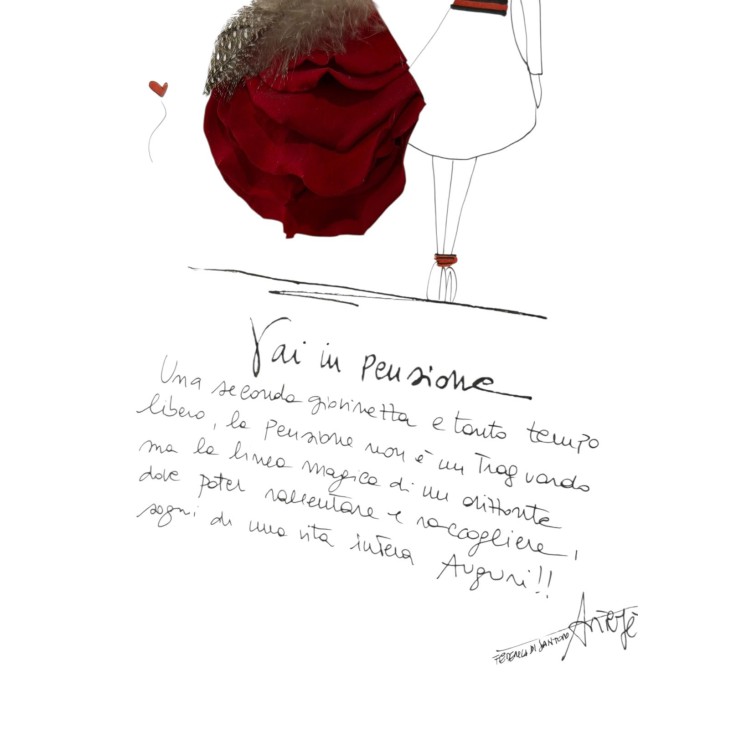 Vai in pensione
Una seconda giovinetta e tanto tempo
libero, la pensione non è un Traguardo
ma la linea magica di un orizzonte
dove poter rallentare e raccogliere,
sogni di una vita intera Auguri!!
Artefè
FEDERICA DI SANTORO